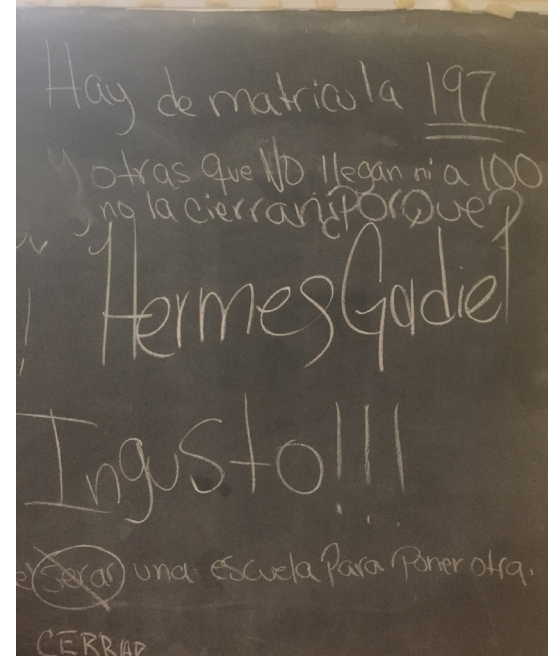 Hay de matricula 197
y otras que No llegan ni a 100
y no la cierran ¿PorQue?
Hermes Gadiel
Ingusto!!!
serar una escuela Para Poner otra.
CERRAR